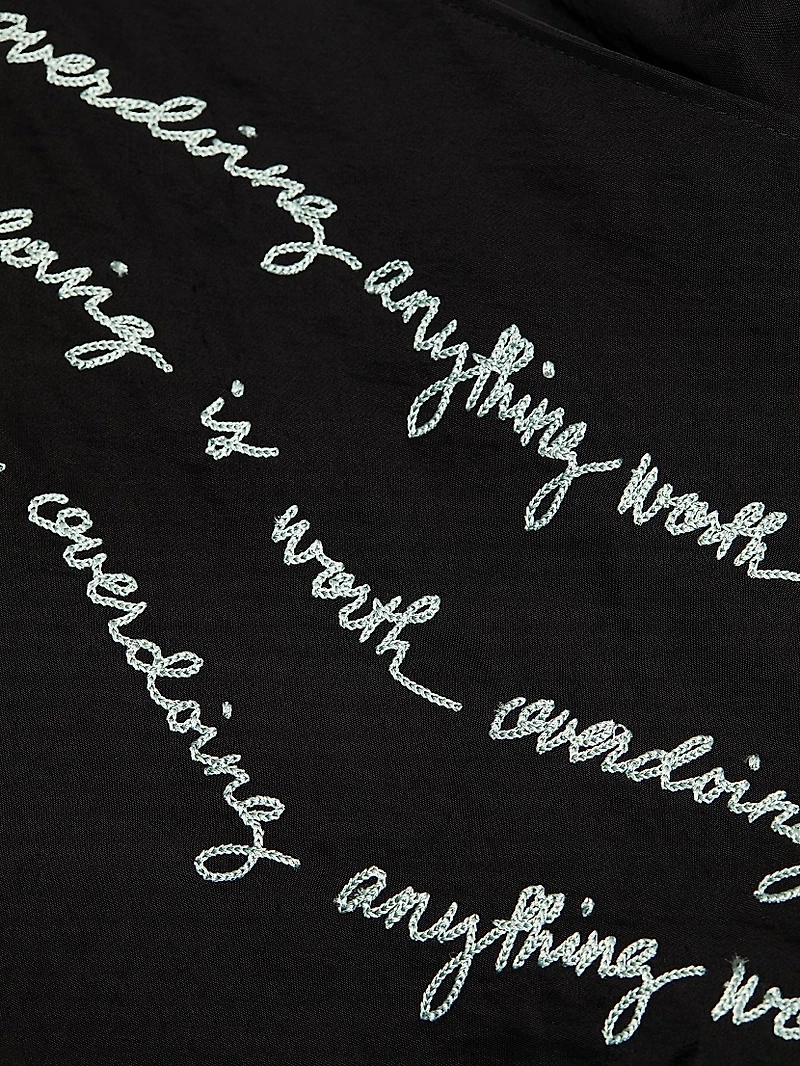 overdoing anything worth
doing is worth overdoing
overdoing anything wo